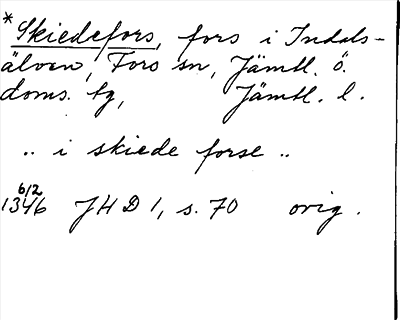 *Skiedefors, fors i Indals-
älven, Fors sn, Jämtl. ö.
doms. tg, Jämtl. l.
.. i skiede forse ..
6/2
1346 JHD 1, s. 70 orig.